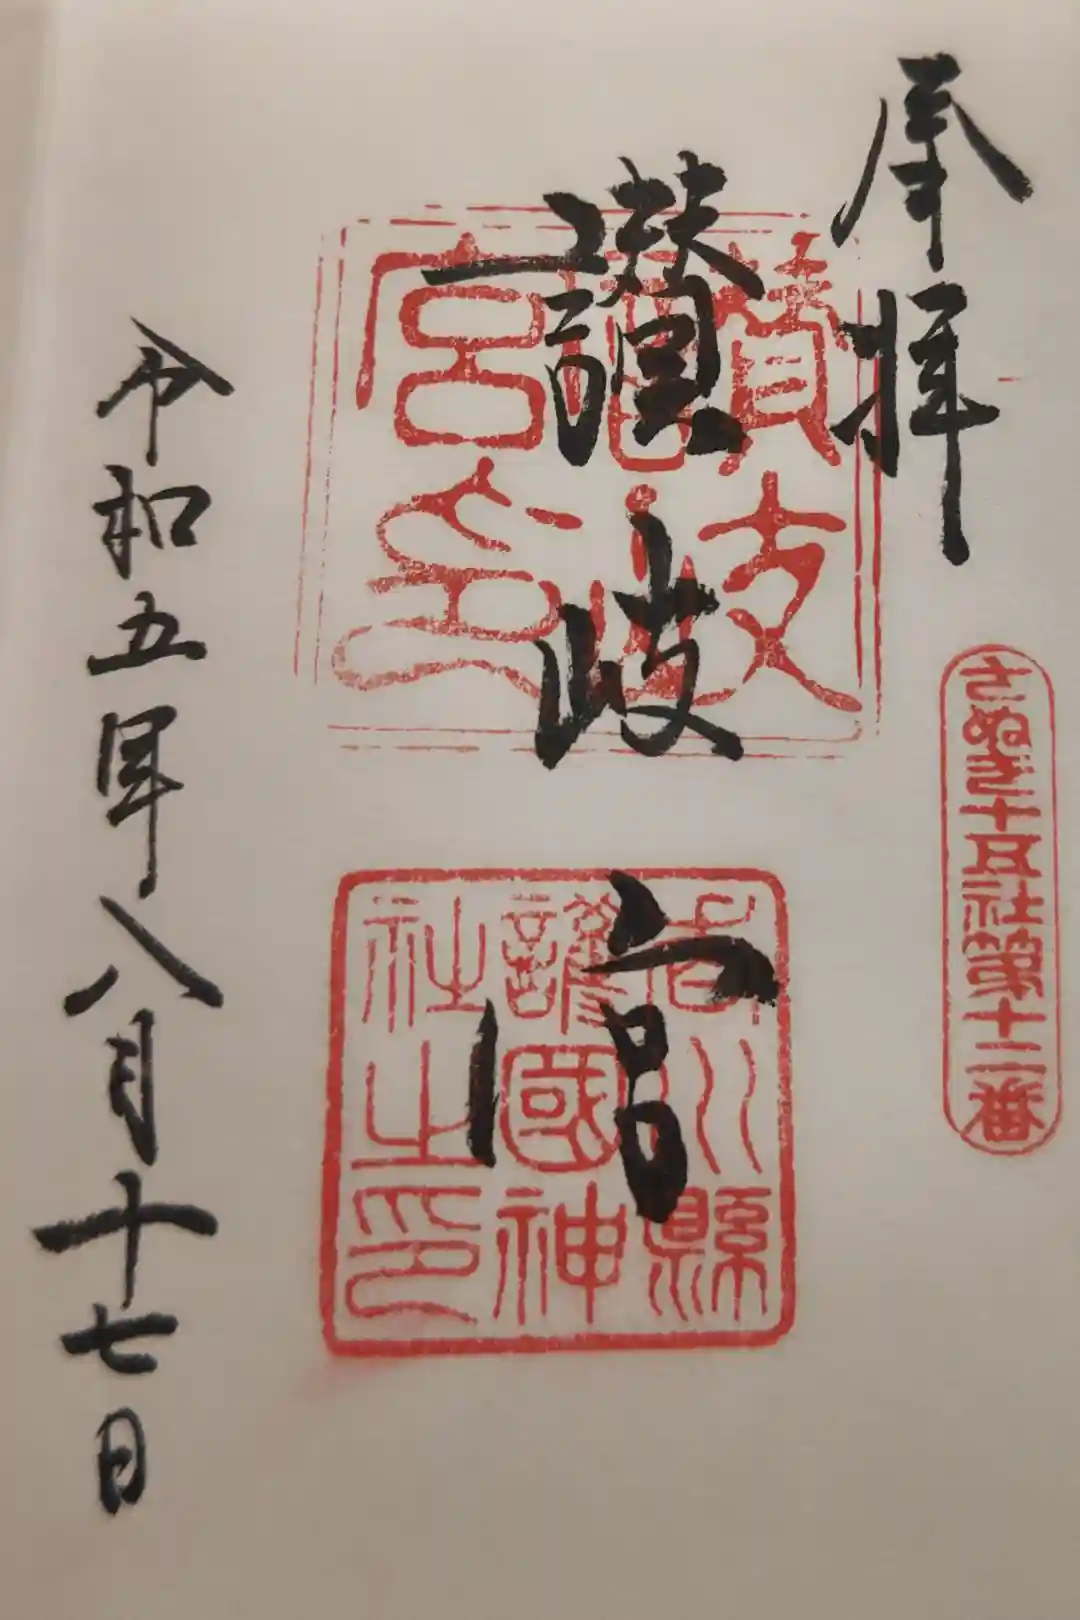 奉拝
さぬき十五社第十二番
讃岐宮
讃岐宮印
香川縣
護國神
社之印
令和五年八月十七日